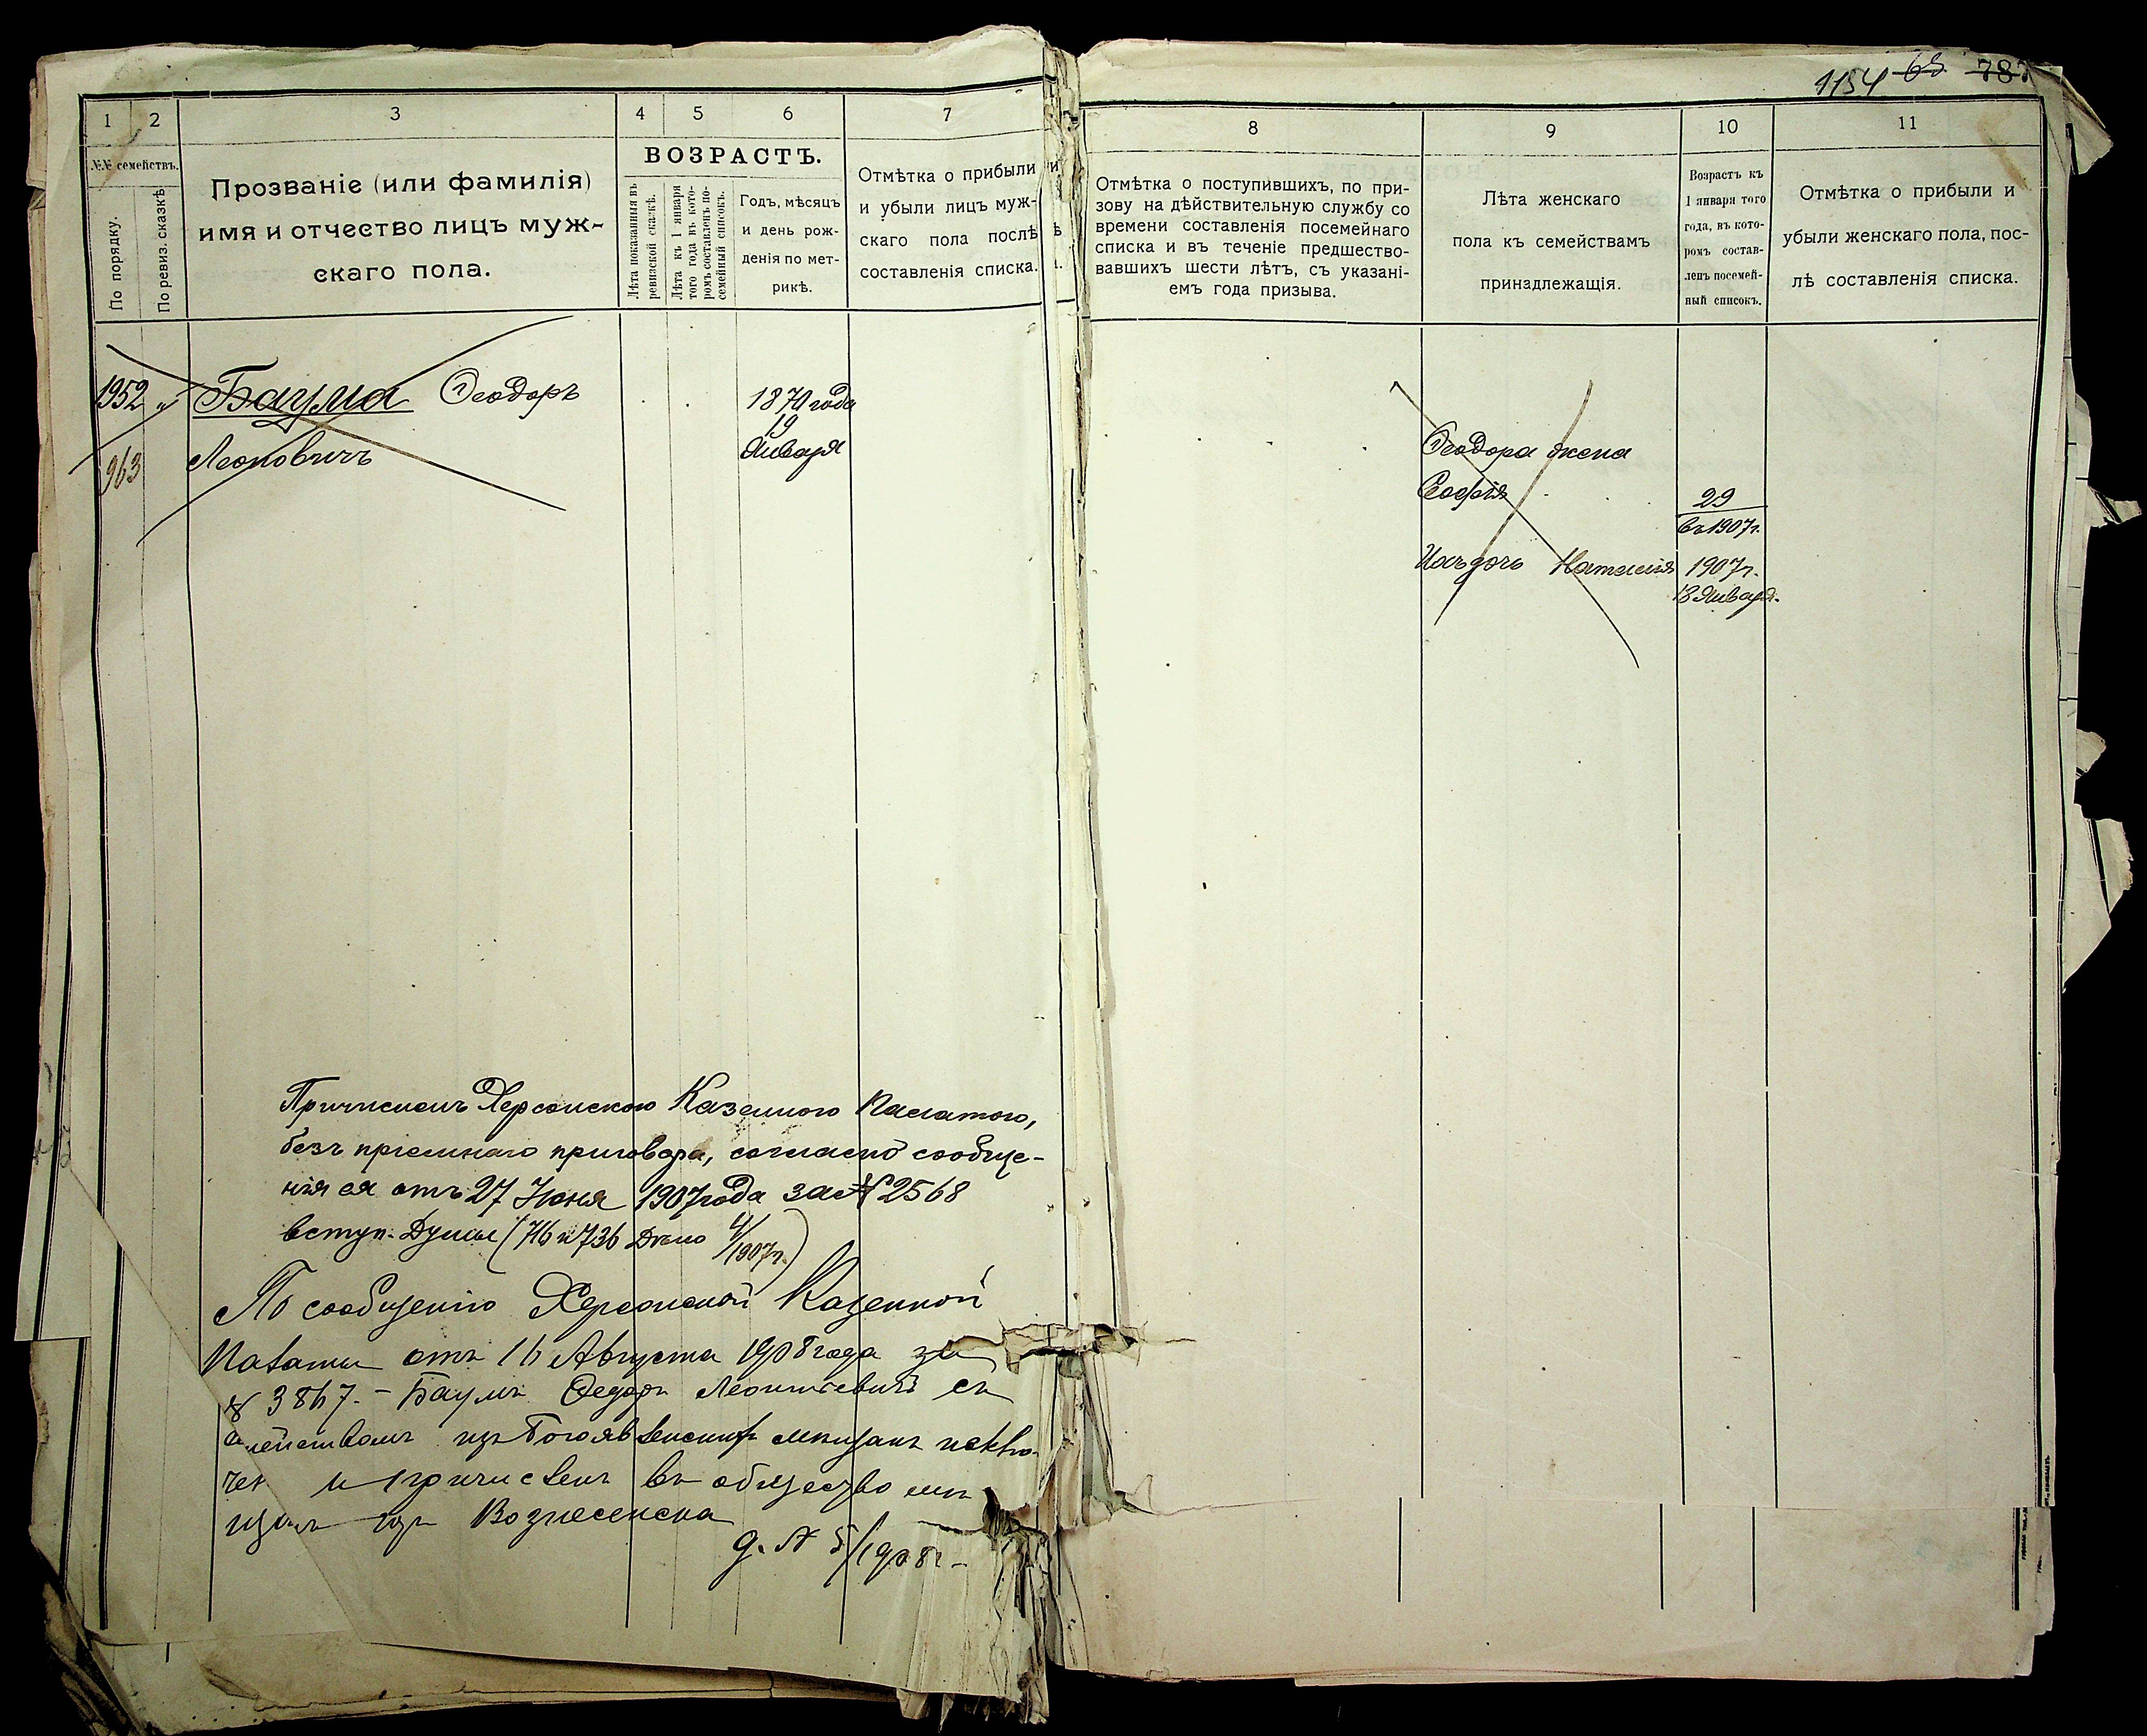 1154 63 787
1 2 3 4 5 6 7
№№ семействъ.
По порядку.
По ревиз. сказкѣ
Прозваніе (или фамилія)
имя и отчество лицъ муж-
скаго пола.
ВОЗРАСТЪ.
Лѣта показанныя въ
ревизской сказкѣ.
Лѣта къ 1 января
того года въ кото-
ромъ составленъ по-
семейный списокъ.
Годъ, мѣсяцъ
и день рож-
денія по мет-
рикѣ.
Отмѣтка о прибыли
и убыли лицъ муж-
скаго пола послѣ
составленія списка.
8 9 10 11
Отмѣтка о поступившихъ, по при-
зову на дѣйствительную службу со
времени составленія посемейнаго
списка и въ теченіе предшество-
вавшихъ шести лѣтъ, съ указані-
емъ года призыва.
Лѣта женскаго
пола къ семействамъ
принадлежащія.
Возрастъ къ
1 января того
года, въ кото-
ромъ состав-
ленъ посемей-
ный списокъ.
Отмѣтка о прибыли и
убыли женскаго пола, пос-
лѣ составленія списка.
1952 " Баума Ѳеодоръ
963 Леоновичъ
1870 года
19
Января
Ѳеодора жена
Софія 29
въ 1907 г.
Ихъ дочь Наталія 1907 г.
13 Января.
Причисленъ Херсонскою Казенною Палатою,
безъ пріемнаго приговора, согласно сообще-
нія ея отъ 27 Іюня 1907 года за № 2568
вступ. Думы (716 и 736 Дѣло 4/1907 г.)
По сообщенію Херсонской Казенной
Палаты отъ 16 Августа 1908 года за
№ 3867. - Баумъ Ѳедоръ Леонтіевичъ съ
семействомъ изъ Богоявленскихъ мѣщанъ исклю-
чен и причисленъ въ общество мѣ
щанъ гор Вознесенска
д. № 5/1908 г -